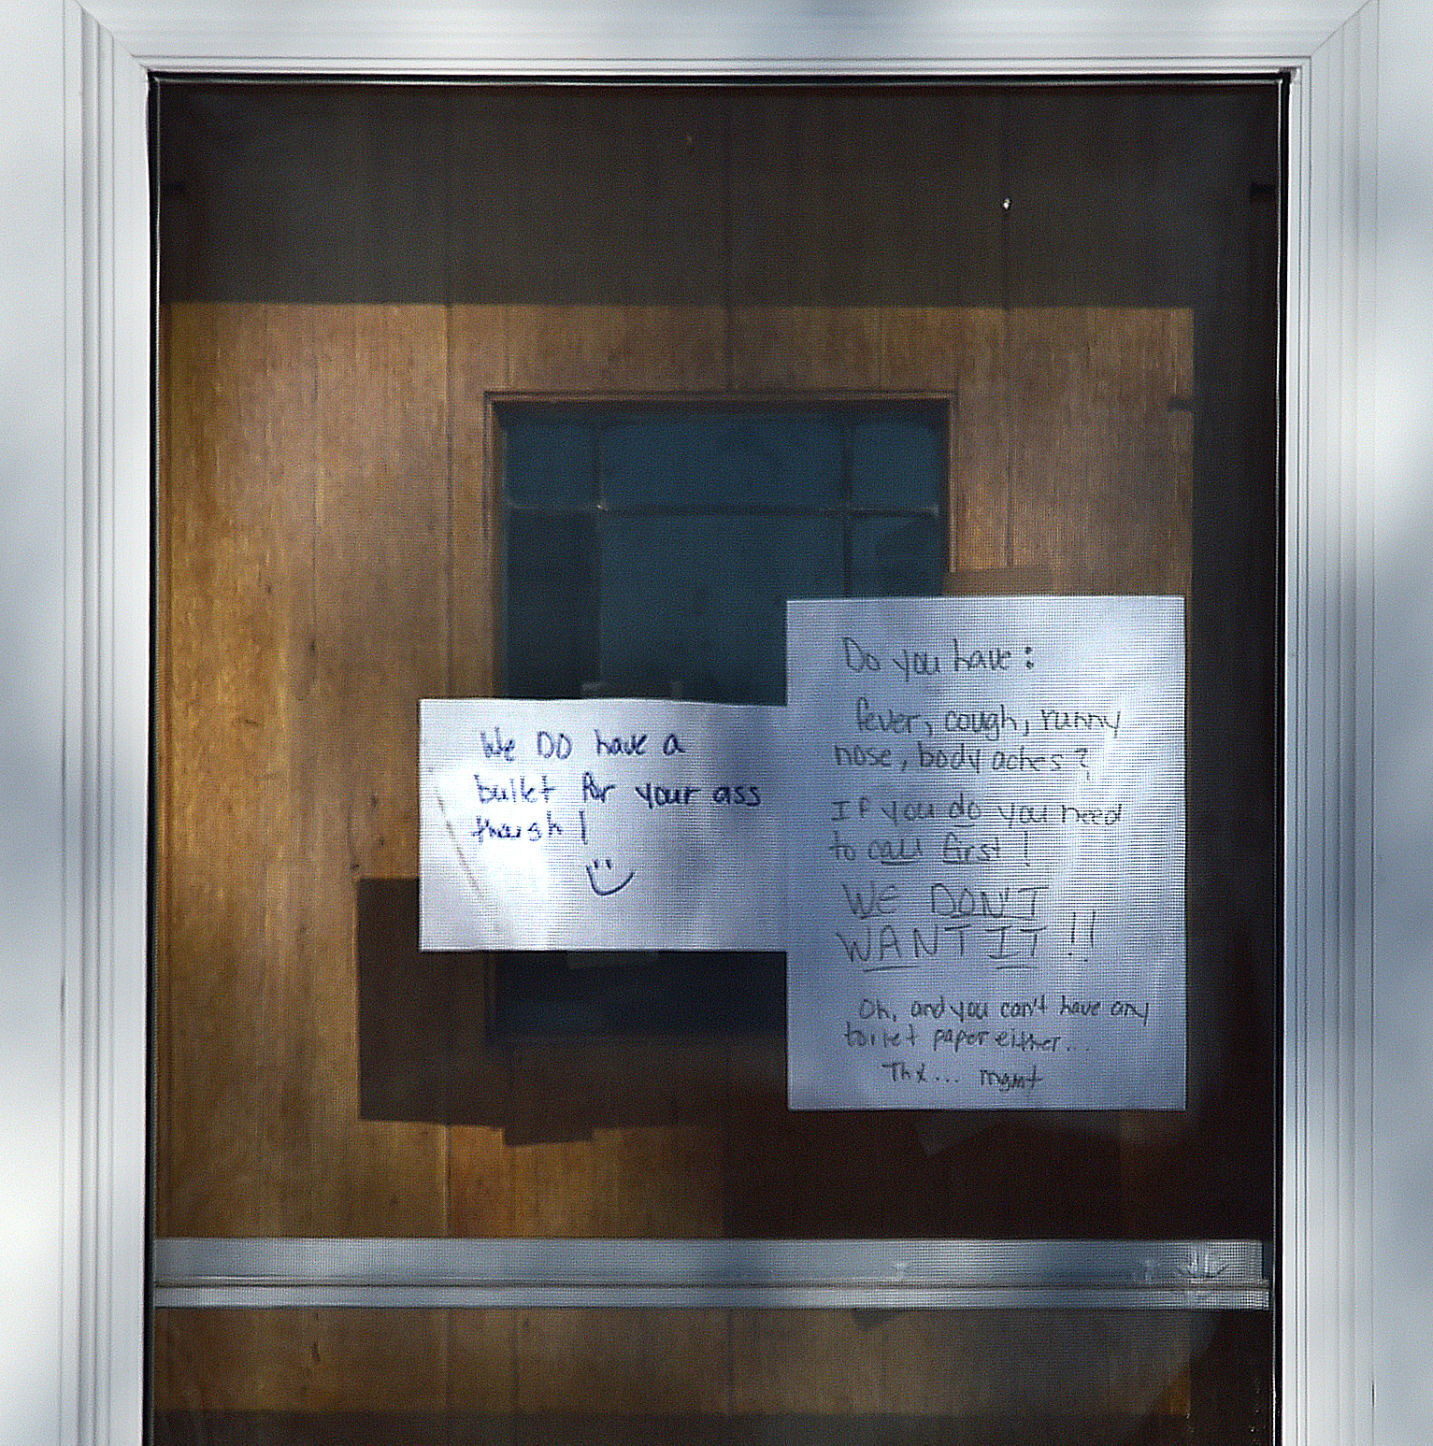 Do you have:
fever, cough, runny
nose, body aches?
If you do you need
to call first!
WE DON'T
WANT IT!!
Oh, and you can't have any
toilet paper either...
Thx... mgmt
We DO have a
bullet for your ass